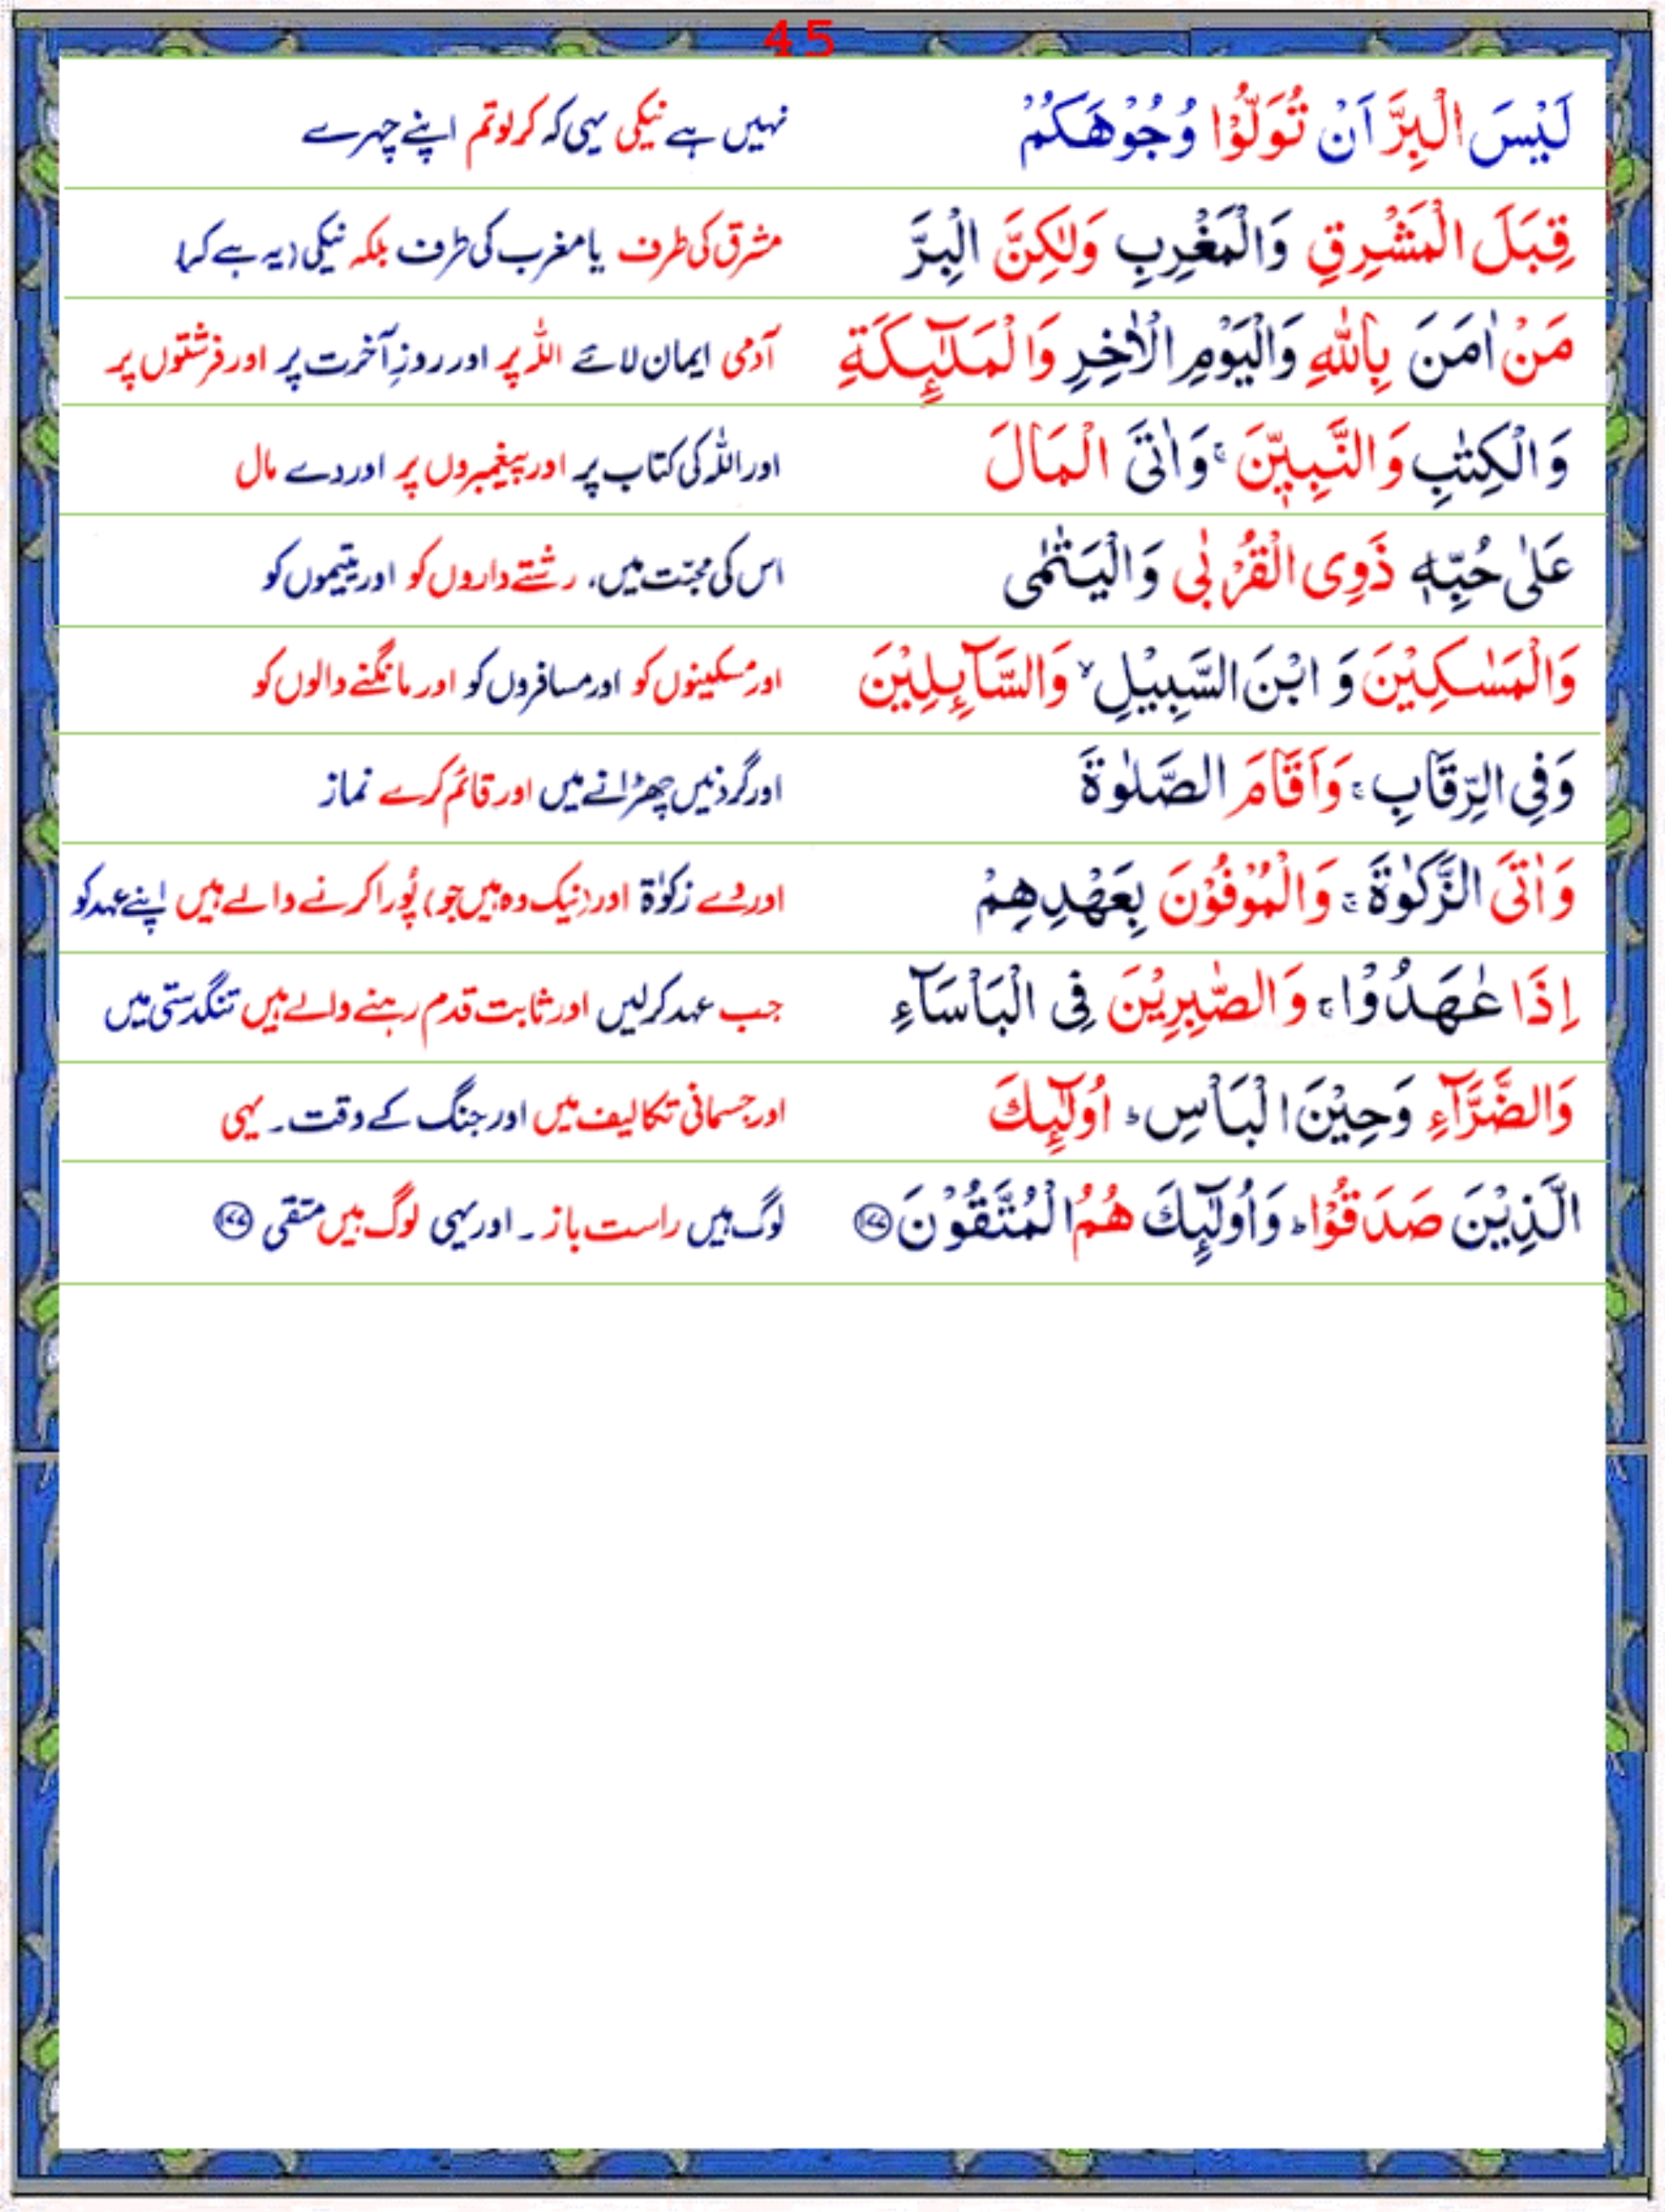 45
لَيْسَ الْبِرَّ اَنْ تُوَلُّوْا وُجُوْهَكُمْ نہیں ہے نیکی یہی کہ کرلو تم اپنے چہرے
قِبَلَ الْمَشْرِقِ وَالْمَغْرِبِ وَلٰكِنَّ الْبِرَّ مشرق کی طرف یا مغرب کی طرف بلکہ نیکی (یہ ہے کہ)
مَنْ اٰمَنَ بِاللّٰهِ وَالْيَوْمِ الْاٰخِرِ وَالْمَلٰٓئِكَةِ آدمی ایمان لائے اللہ پر اور روزِ آخرت پر اور فرشتوں پر
وَالْكِتٰبِ وَالنَّبِيّٖنَ ۚ وَاٰتَى الْمَالَ اور اللہ کی کتاب پر اور پیغمبروں پر اور دے مال
عَلٰى حُبِّهٖ ذَوِى الْقُرْبٰى وَالْيَتٰمٰى اس کی محبّت میں، رشتے داروں کو اور یتیموں کو
وَالْمَسٰكِيْنَ وَ ابْنَ السَّبِيْلِ ۙ وَالسَّآئِلِيْنَ اور مسکینوں کو اور مسافروں کو اور مانگنے والوں کو
وَفِى الرِّقَابِ ۚ وَاَقَامَ الصَّلٰوةَ اور گردنیں چھڑانے میں اور قائم کرے نماز
وَاٰتَى الزَّكٰوةَ ۚ وَالْمُوْفُوْنَ بِعَهْدِهِمْ اور دے زکوٰۃ اور (نیک وہ ہیں جو) پُورا کرنے والے ہیں اپنے عہد کو
اِذَا عٰهَدُوْا ۚ وَالصّٰبِرِيْنَ فِى الْبَاْسَآءِ جب عہد کرلیں اور ثابت قدم رہنے والے ہیں تنگدستی میں
وَالضَّرَّآءِ وَحِيْنَ الْبَاْسِ ؕ اُولٰٓئِكَ اور جسمانی تکالیف میں اور جنگ کے وقت۔ یہی
الَّذِيْنَ صَدَقُوْا ؕ وَاُولٰٓئِكَ هُمُ الْمُتَّقُوْنَ ۝۱۷۷ لوگ ہیں راست باز ۔ اور یہی لوگ ہیں متقی ۝۱۷۷